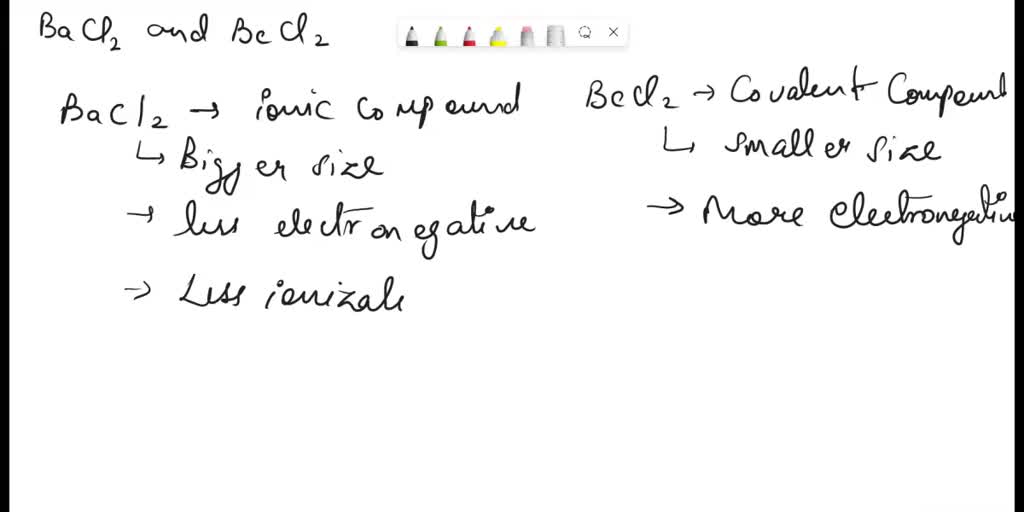 BaCl₂ and BeCl₂
BaCl₂ → ionic compound
↳ Bigger size
→ less electronegative
→ Less ionizati
BeCl₂ → Covalent Compoun
↳ smaller size
→ More electronegativ